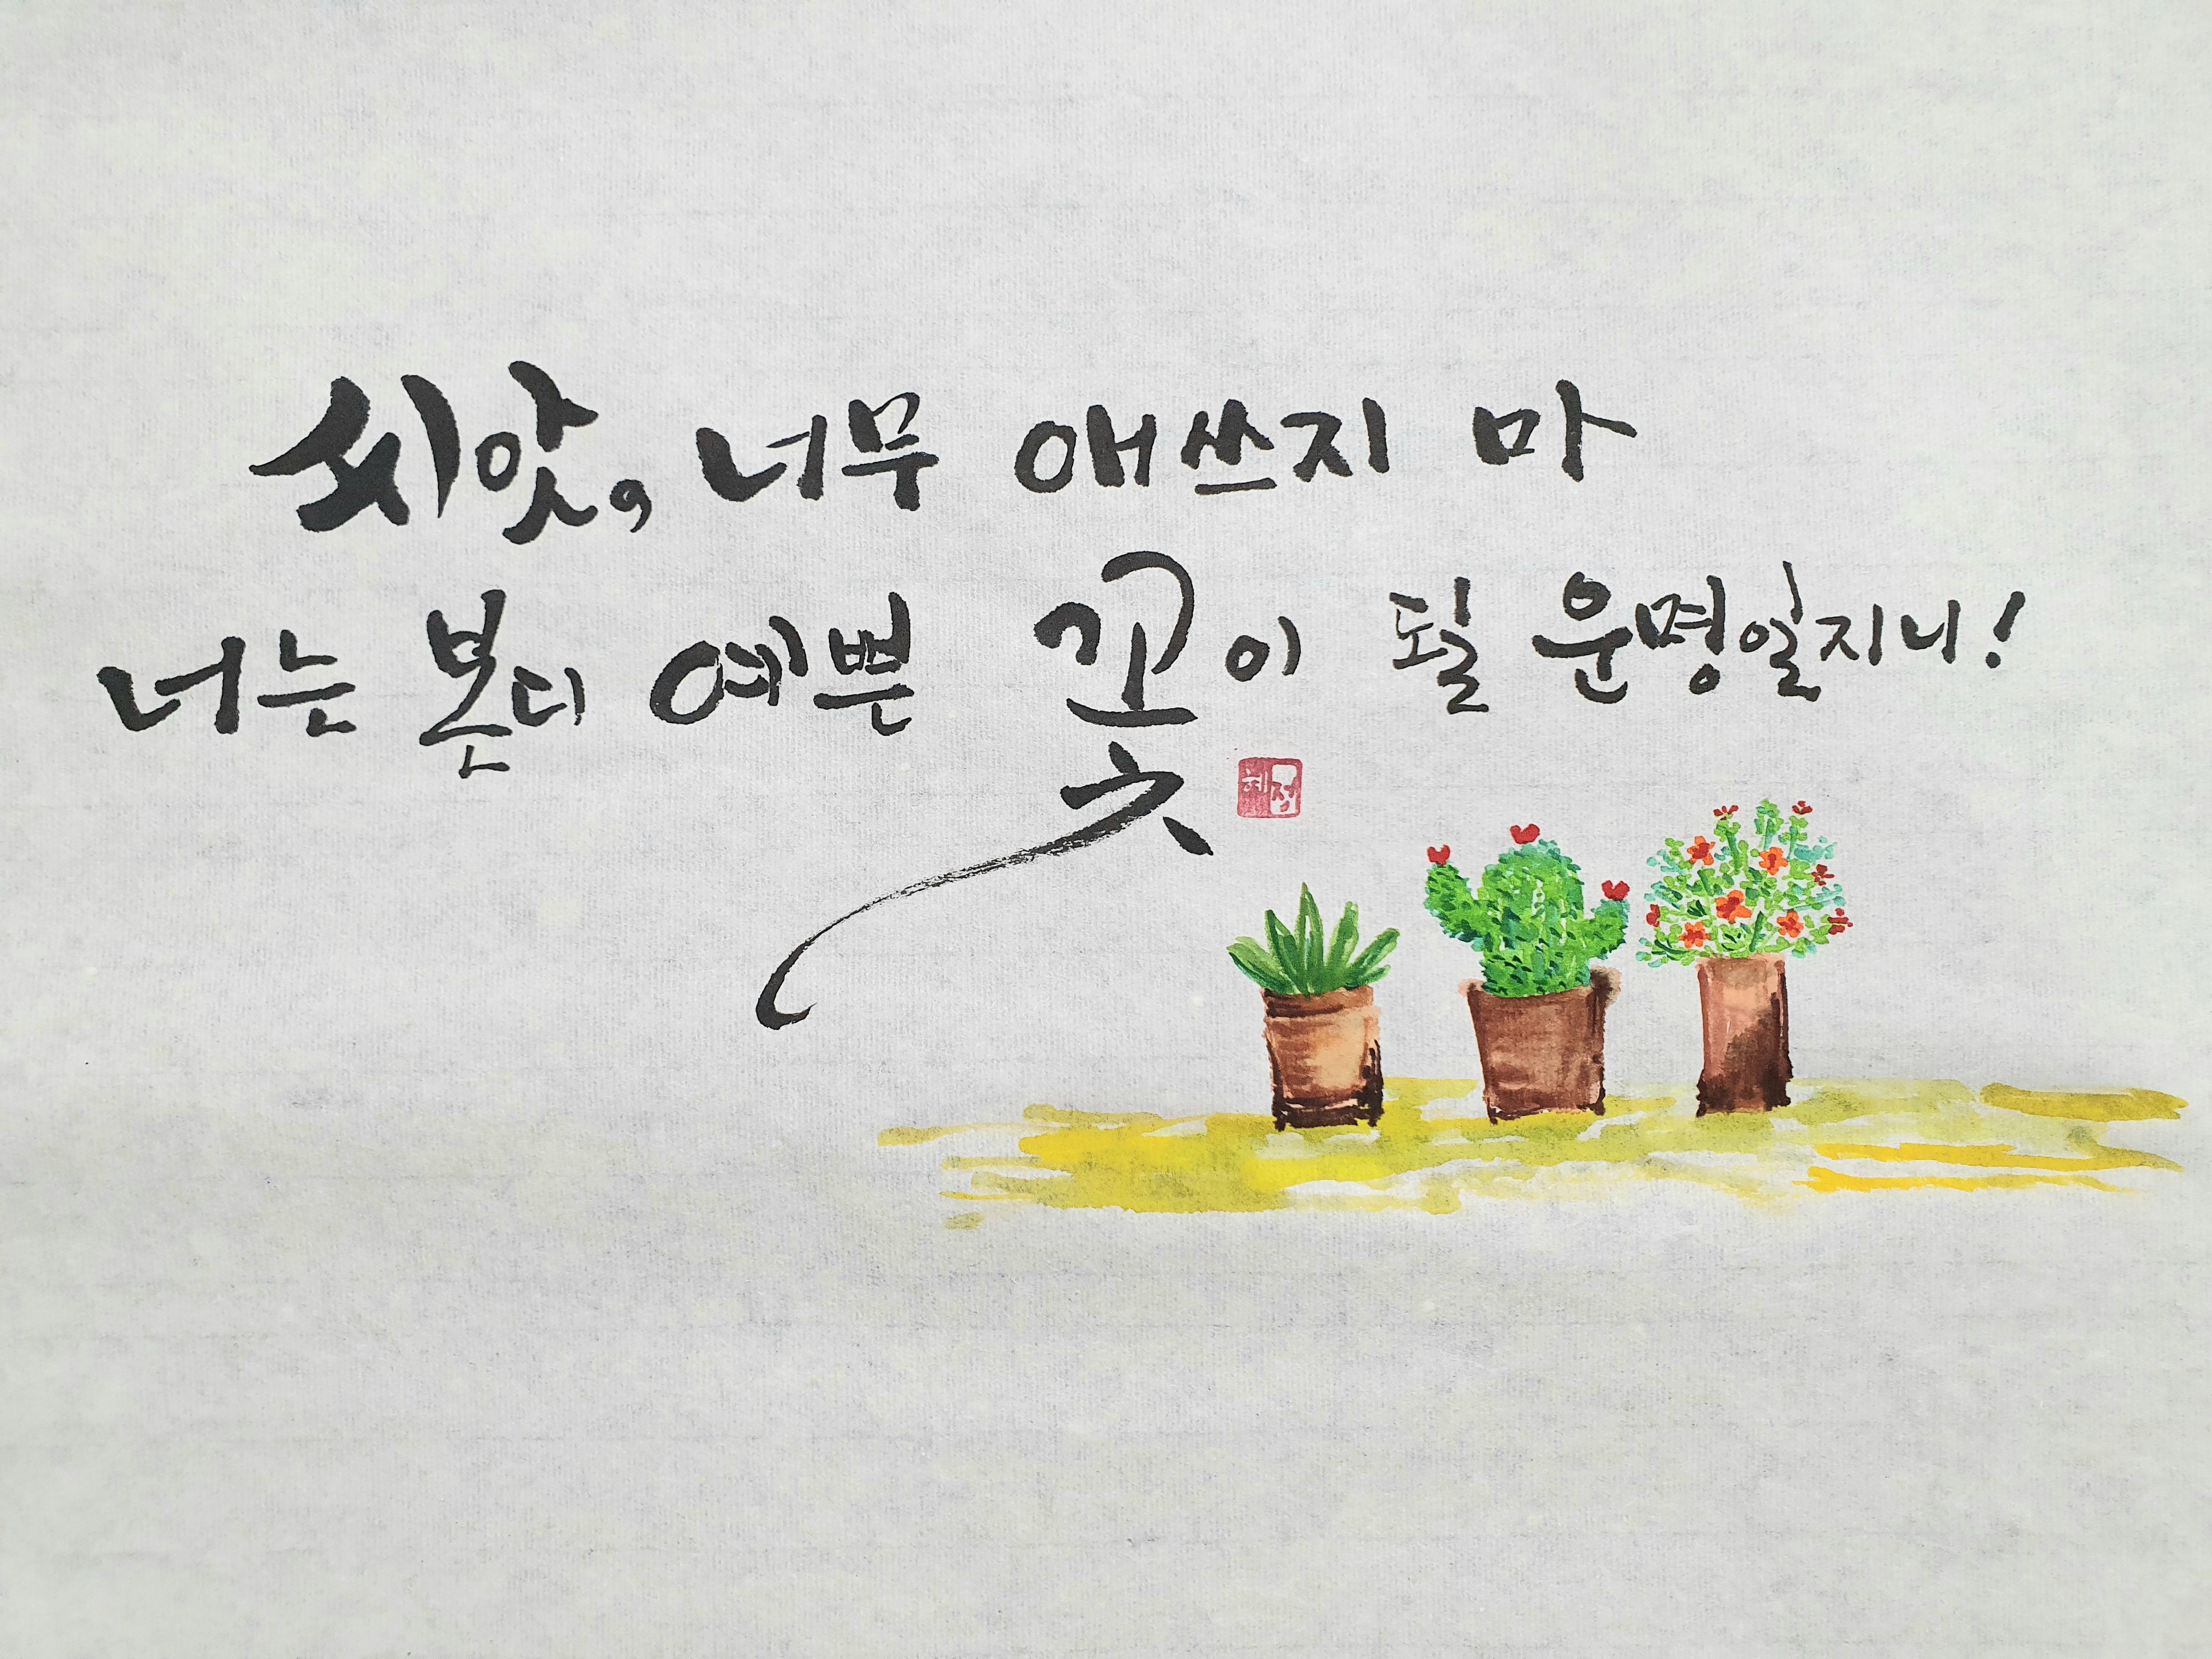 씨앗, 너무 애쓰지 마
너는 본디 예쁜 꽃이 필 운명일지니!
혜정